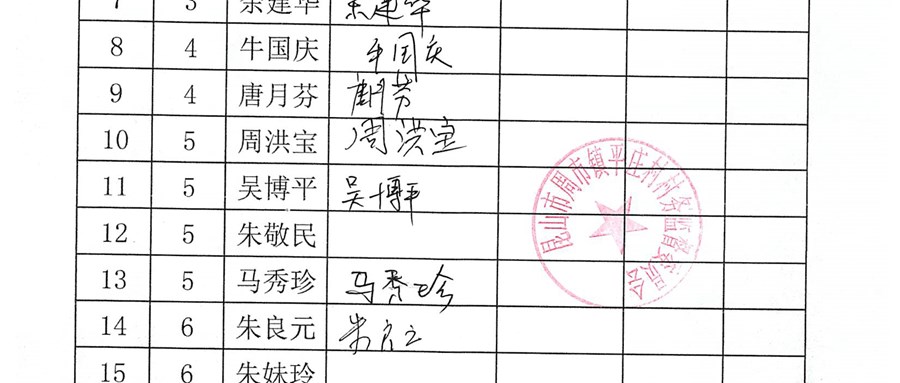 7 3 余建华 余建华
8 4 牛国庆 牛国庆
9 4 唐月芬 唐月芬
10 5 周洪宝 周洪宝
11 5 吴博平 吴博平
12 5 朱敬民
13 5 马秀珍 马秀珍
14 6 朱良元 朱良元
15 6 朱妹玲
昆山市周市镇平庄村村务监督委员会